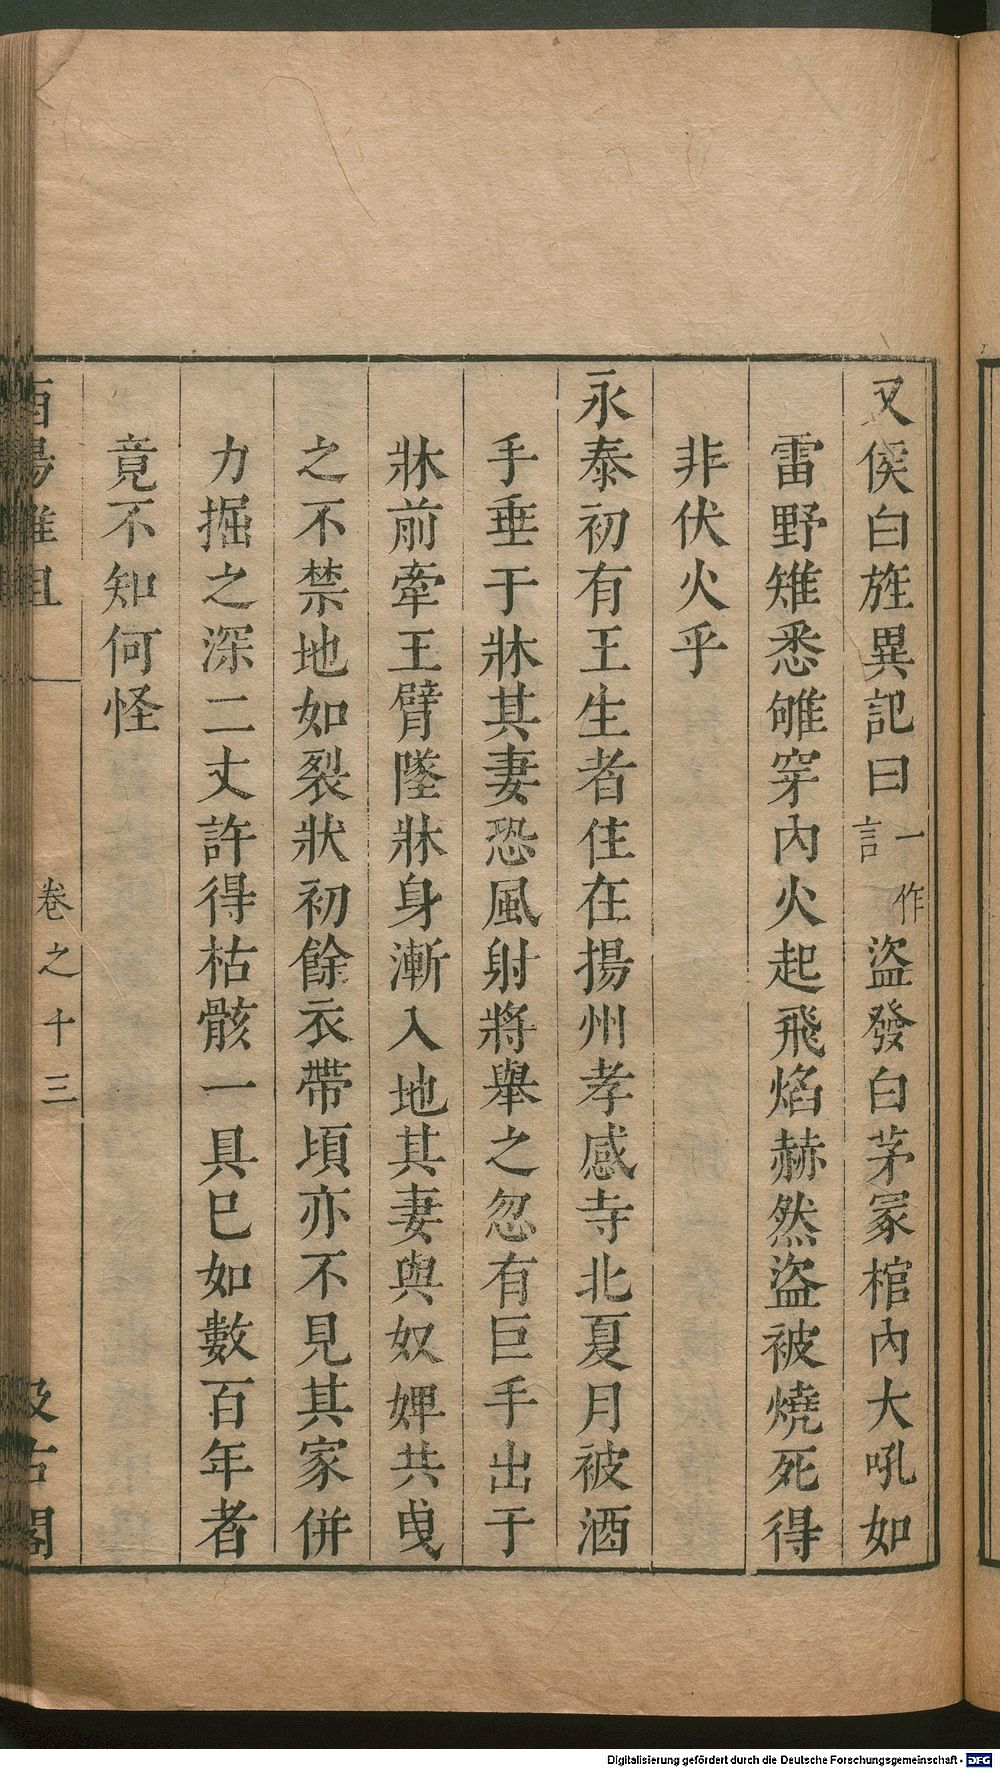 又侯白旌異記曰一作言盜發白茅冢棺內大吼如
雷野雉悉雊穿內火起飛焰赫然盜被燒死得
非伏火乎
永泰初有王生者住在揚州孝感寺北夏月被酒
手垂于牀其妻恐風射將舉之忽有巨手出于
牀前牽王臂墜牀身漸入地其妻與奴婢共曳
之不禁地如裂狀初餘衣帶頃亦不見其家併
力掘之深二丈許得枯骸一具已如數百年者
竟不知何怪
酉陽雜俎 卷之十三 汲古閣
Digitalisierung gefördert durch die Deutsche Forschungsgemeinschaft - DFG